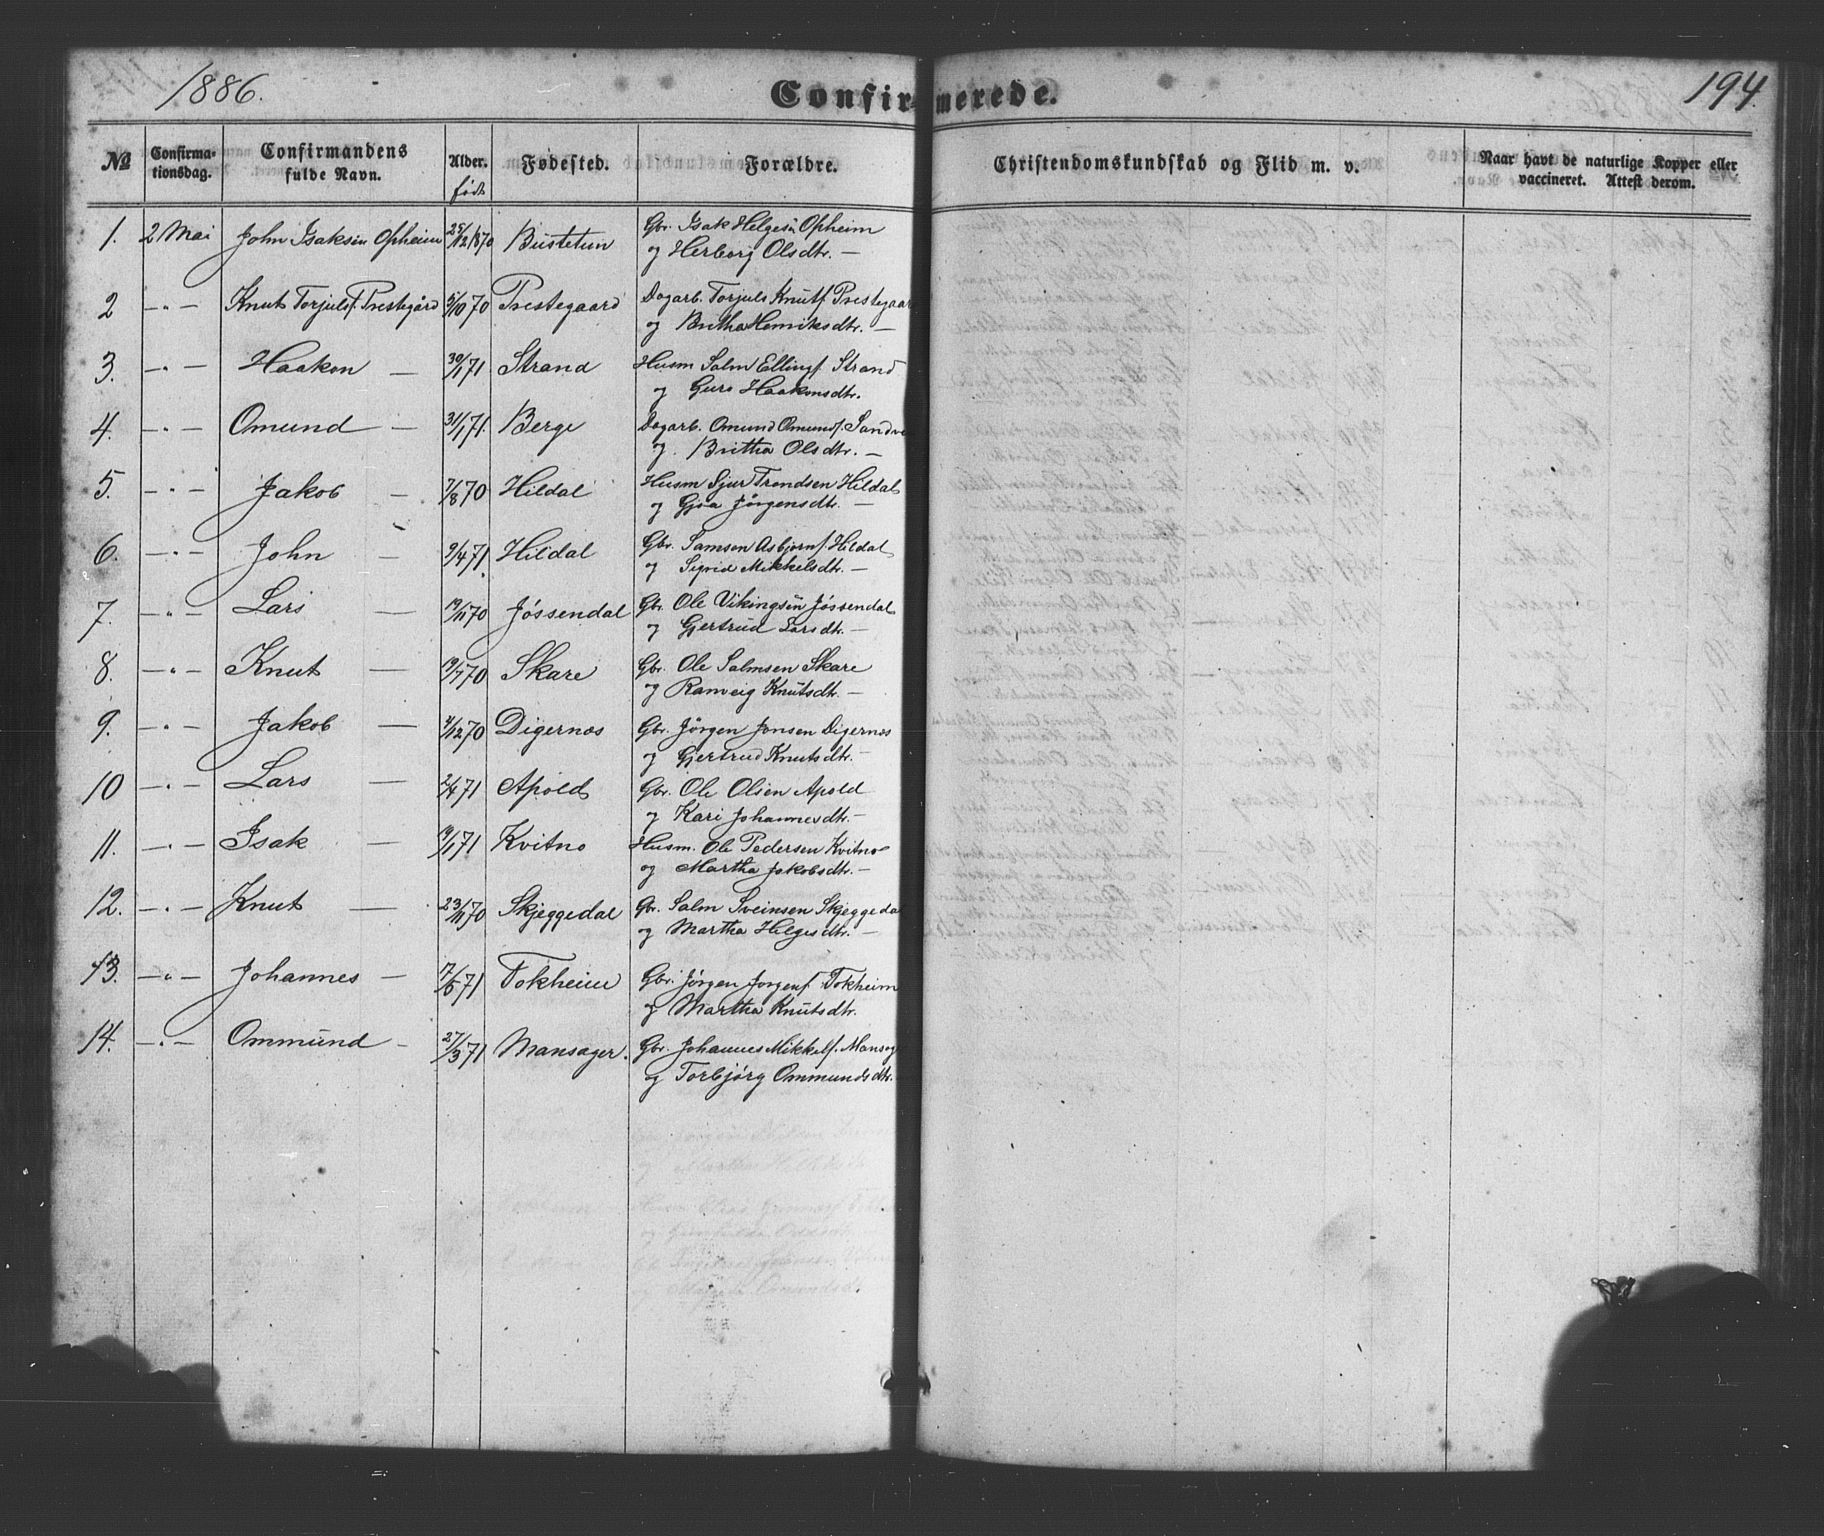 1886.
Confirmerede.
194.
No
Confirma-
tionsdag.
Confirmandens
fulde Navn.
Alder.
født
Fødested.
Forældre.
Christendomskundskab og Flid m. v.
Naar havt de naturlige Kopper eller
vaccineret. Attest derom.
1. 2 Mai John Isaksen Opheim 25/12 1870 Bustetun Gbr. Isak Helgesen Opheim
og Herborg Olsdtr. —
2 — " — Knut Torjulsf. Prestegård 5/10 70 Prestegaard Dagarb. Torjuls Knutf. Prestegaar
og Britha Henriksdtr. —
3. — " — Haakon — 30/1 71 Strand Husm Salm Ellingf. Strand
og Guro Haakonsdtr.
4. — " — Omund — 31/1 71. Berge Dagarb. Omund Omundsf. Sandve
og Britha Olsdtr. —
5. — " — Jakob — 7/8 70 Hildal Husm Sjur Trondsen Hildal
og Gjøa Jörgensdtr. —
6. — " — John — 9/4 71 Hildal Gbr. Samson Asbjørnf. Hildal
og Sigrid Mikkelsdtr. —
7. — " — Lars — 19/11 70 Jössendal Gbr. Ole Vikingsen Jössendal
og Gjertrud Larsdtr. —
8. — " — Knut — 19/7 70 Skare Gbr. Ole Salmsen Skare
og Ranveig Knutsdtr. —
9. — " — Jakob — 4/12 70 Digernes Gbr. Jörgen Jonsen Digernes
og Gjertrud Knutsdtr.
10 — " — Lars — 2/4 71 Apold Gbr. Ole Olsen Apold
og Kari Johannesdtr. —
11. — " — Isak — 19/1 71 Kvitno Husm. Ole Pedersen Kvitno
og Martha Jakobsdtr. —
12. — " — Knut — 23/11 70 Skjeggedal Gbr. Salm Sveinsen Skjeggeda
og Martha Helgesdtr. —
13. — " — Johannes — 7/5 71 Tokheim Gbr. Jörgen Jorgenf. Tokheim
og Martha Knutsdtr.
14. — " — Ommund — 27/3 71 Mansager. Gbr. Johannes Mikkelf. Mansag
og Torbjörg Ommundsdtr.